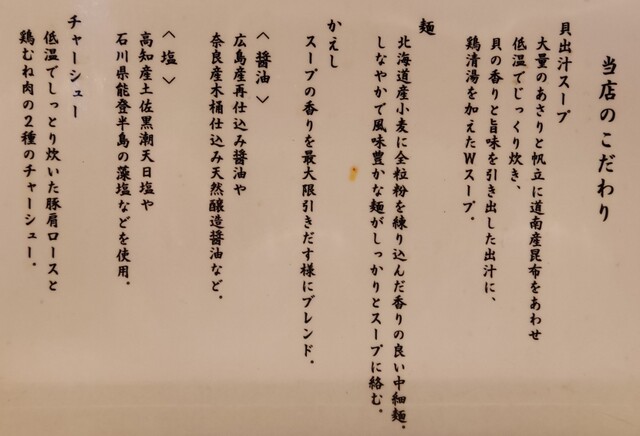 当店のこだわり
貝出汁スープ
大量のあさりと帆立に道南産昆布をあわせ
低温でじっくり炊き、
貝の香りと旨味を引き出した出汁に、
鶏清湯を加えたWスープ.
麺
北海道産小麦に全粒粉を練り込んだ香りの良い中細麺.
しなやかで風味豊かな麺がしっかりとスープに絡む.
かえし
スープの香りを最大限引きだす様にブレンド.
〈醤油〉
広島産再仕込み醤油や
奈良産木桶仕込み天然醸造醤油など.
〈塩〉
高知産土佐黒潮天日塩や
石川県能登半島の藻塩などを使用.
チャーシュー
低温でしっとり炊いた豚肩ロースと
鶏むね肉の2種のチャーシュー.